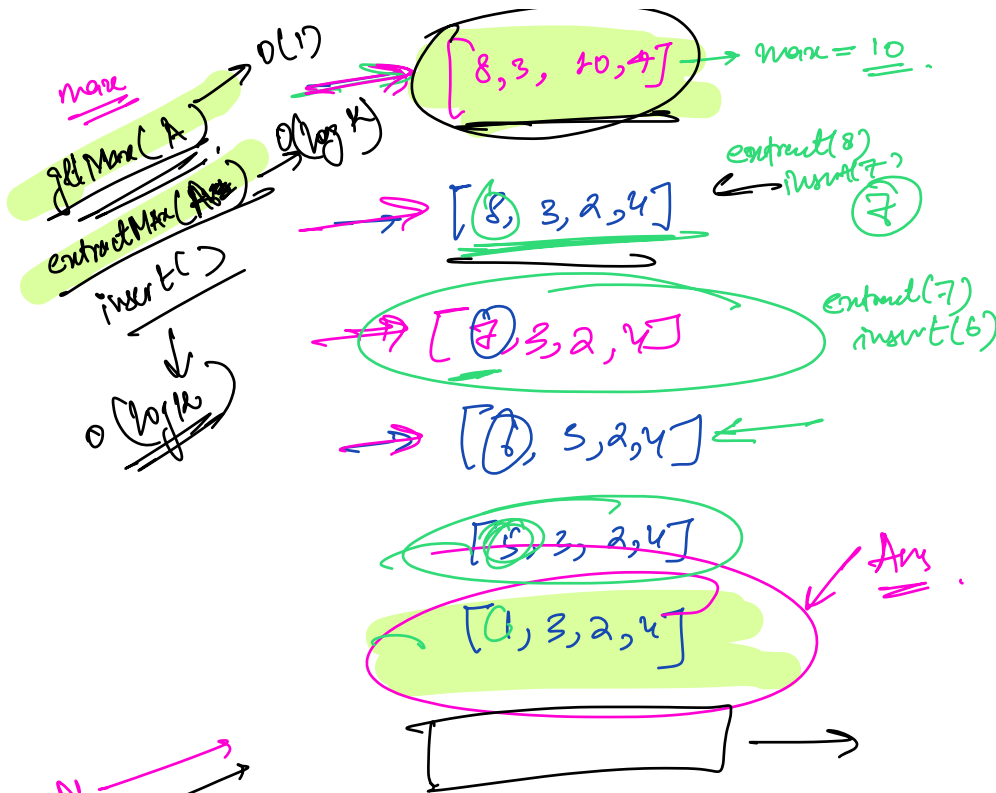 max
getMax(A)
O(1)
extractMax(A)
O(log K)
insert()
O(log k)
[8, 3, 10, 4]
max = 10.
[8, 3, 2, 4]
extract(8)
insert(7)
7
[7, 3, 2, 4]
extract(7)
insert(6)
[6, 3, 2, 4]
[5, 3, 2, 4]
Ans.
[1, 3, 2, 4]
N